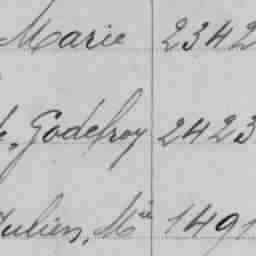 Marie 2342
Godefroy 2423
Julien, Mie 1491